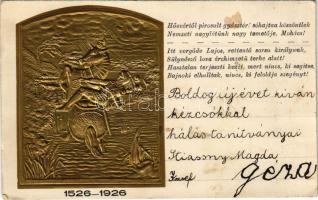 Hősvértől pirosult gyásztér! sóhajtva köszöntlek
Nemzeti nagylétünk nagy temetője, Mohács!
Itt vergőde Lajos, rettentő sorsu királyunk,
Sülyedező lova érckimetü terhe alatt!
Hasztalan terjeszti kezét, mert nincs, ki segitse,
Bajnoki elhulltak, nincs, ki feloldja szegényt!
Boldog újévet kiván
kézcsókkal
hálás tanitványai
Kiasny Magda
József
geza
1526-1926